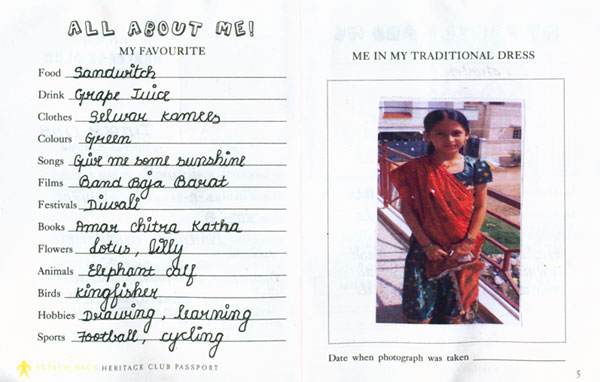 ALL ABOUT ME!
MY FAVOURITE
Food Sandwitch
Drink Grape Juice
Clothes Selwar Kamees
Colours Green
Songs Give me some sunshine
Films Band Baja Barat
Festivals Diwali
Books Amar chitra Katha
Flowers Lotus, lilly
Animals Elephant calf
Birds Kingfisher
Hobbies Drawing, learning
Sports Football, cycling
INTACH HECS HERITAGE CLUB PASSPORT
ME IN MY TRADITIONAL DRESS
Date when photograph was taken
5